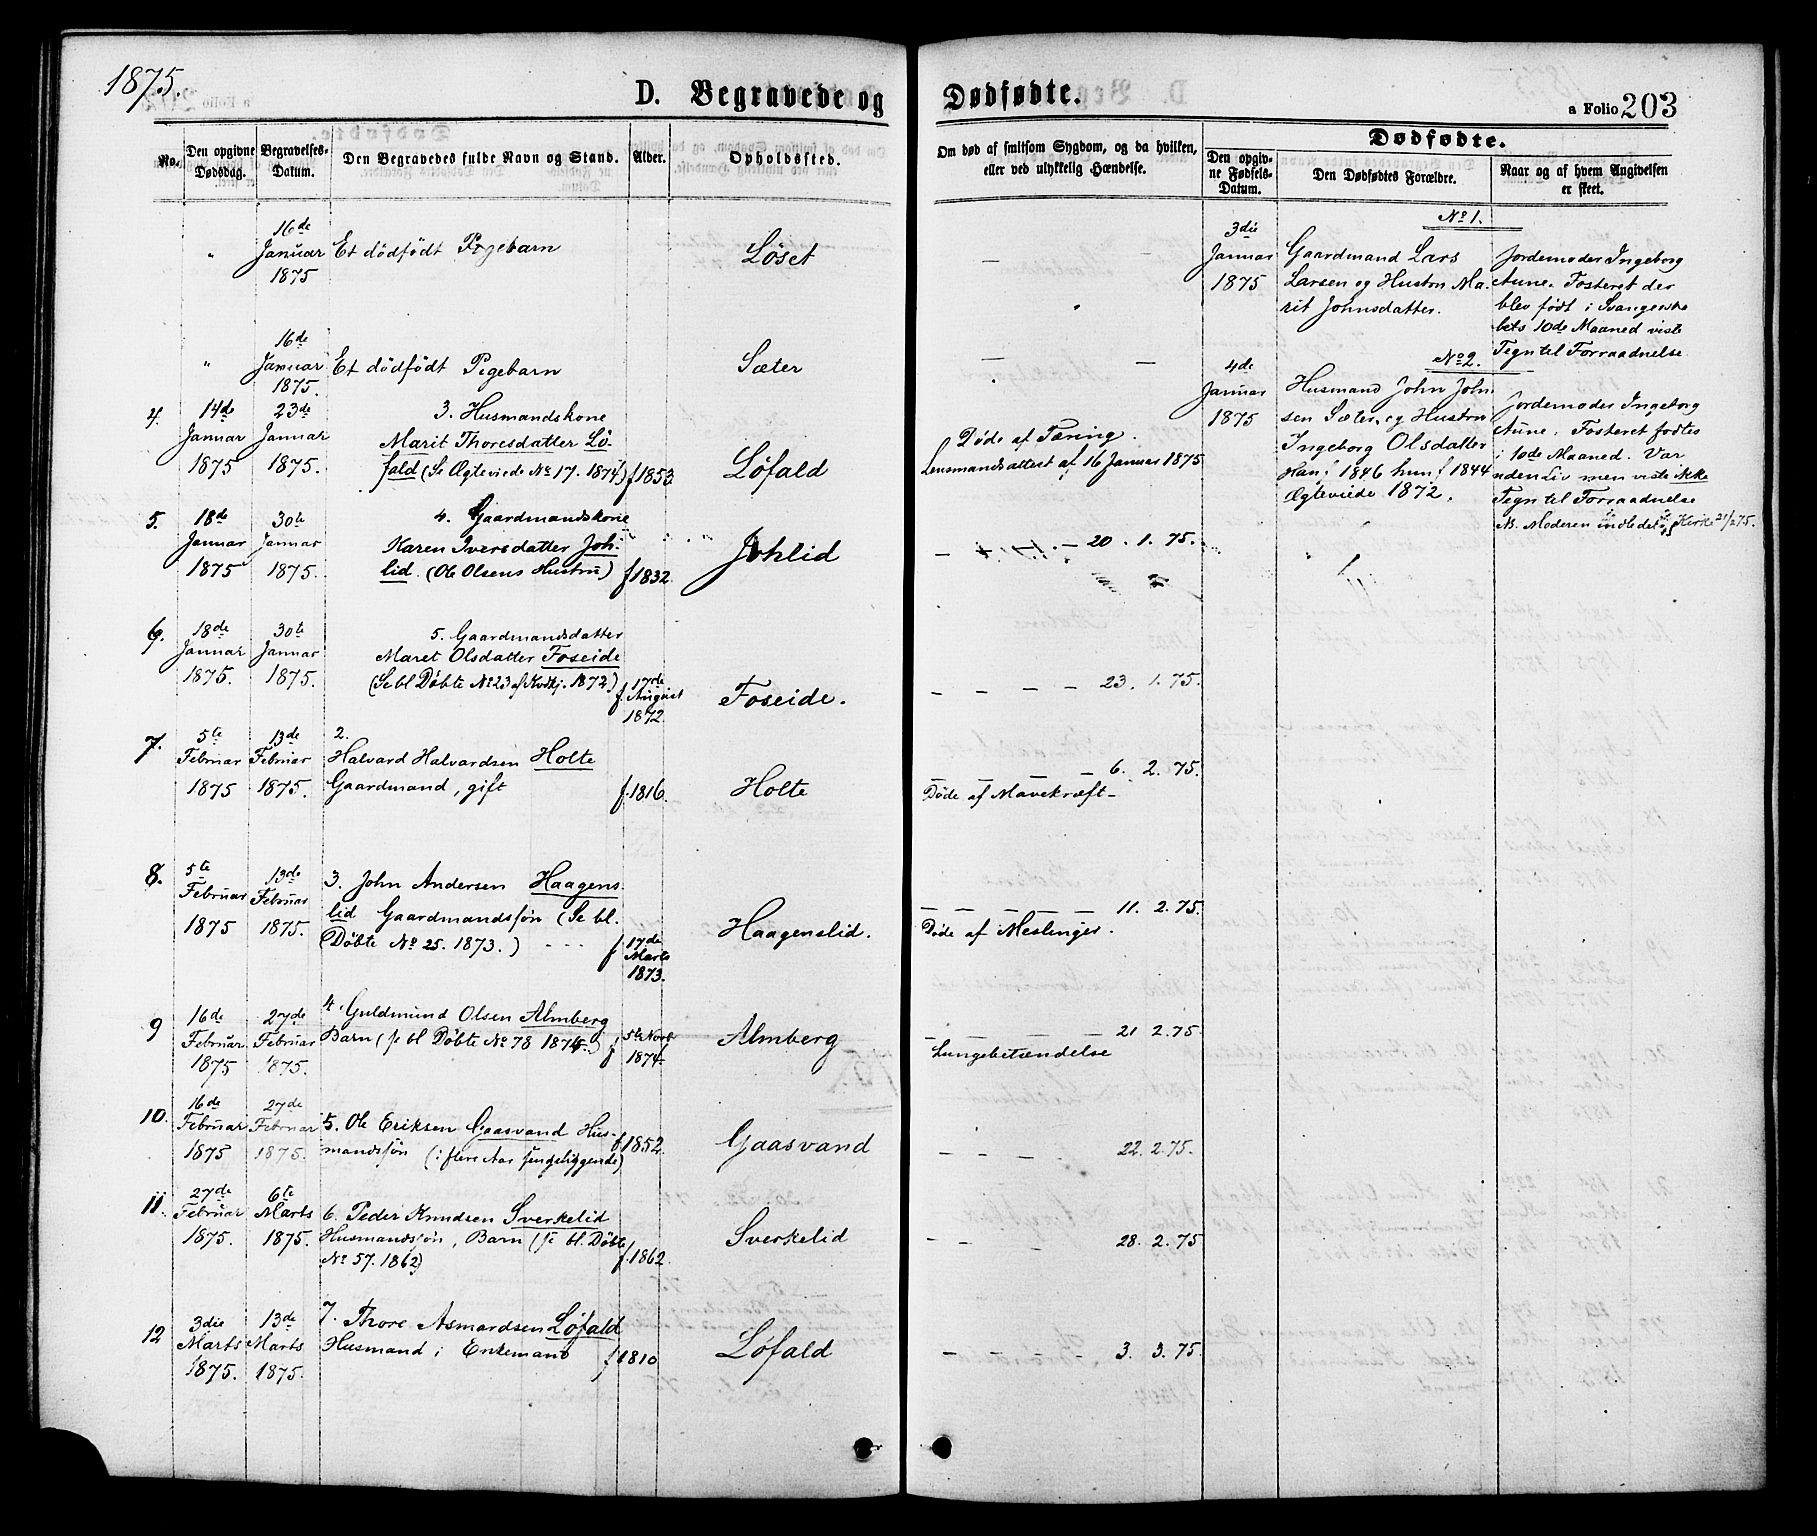 1875.
D. Begravede og Dødfødte.
a Folio 203
No.
Den opgivne Dødsdag.
Begravelses-Datum.
Den Begravedes fulde Navn og Stand.
Alder.
Opholdssted.
Om død af smitsom Sygdom, og da hvilken, eller ved ulykkelig Hændelse.
Dødfødte.
Den opgivne Fødsels-Datum.
Den Dødfødtes Forældre.
Naar og af hvem Angivelsen er skeet.
" 16de Januar 1875
Et dödfödt Pigebarn
Löset
— —
3die Januar 1875
No 1.
Gaardmand Lars
Larsen og Hustru Ma-
rit Johnsdatter.
Jordemoder Ingeborg
Aune. Fosteret der
blev födt i Svangerska
bets 10de Maaned viste
Tegn til Forraadnelse
" 16de Januar 1875.
Et dödfödt Pigebarn
Sæter
— —
4de Januar 1875
No 2.
Husmand John John
sen Sæter, og Hustru
Ingeborg Olsdatter
Han f 1846 hun f 1844
Ægteviede 1872.
Jordemoder Ingeborg
Aune. Fosteret fodtes
i 10de Maaned. Var
uden Liv men viste ikke
Tegn til Forraadnelse
Moderen indledet Kirke 21/2 75.
4. 14de Januar 1875
23de Januar 1875.
3. Husmandskone
Marit Thoresdatter Lö-
fald (Se Ægteviede No 17. 1874)
f 1853
Löfald
Døde af Tæring.
Lensmandsattest af 16 Januar 1875
5. 18de Januar 1875
30te Januar 1875.
4. Gaardmandskone
Karen Iversdatter Joh-
lid. (Ole Olsens Hustru)
f 1832
Johlid
20. 1. 75.
6. 18de Januar 1875.
30te Januar 1875.
5. Gaardmandsdatter
Maret Olsdatter Foseide
(Se bl Döbte No 23 af Kvdkj. 1872)
f. 17de August 1872.
Foseide.
— — — — 23. 1. 75.
7. 5te Februar 1875
13de Februar 1875.
2.
Halvard Halvardsen Holte
Gaardmand, gift
f. 1816.
Holte
— — — — 6. 2. 75.
Døde af Mavekræft
8. 5te Februar 1875
13de Februar 1875.
3. John Andersen Haagens-
lid Gaardmandssön (Se bl.
Döbte No 25. 1873.)
f 17de Marts 1873.
Haagenslid.
— — — — — 11. 2. 75.
Døde af Meslinger.
9 16de Februar 1875
27de Februar 1875.
4. Guldmund Olsen Almberg
Barn (se bl Döbte No 78 1874.)
f 5te Novb 1874
Almberg
— — — — — 21 2. 75
Lungebetændelse
10. 16de Februar 1875
27de Februar 1875.
5. Ole Eriksen Gaasvand Hus-
mandssön (i flere Aar sengeliggende)
f. 1852.
Gaasvand
— — — 22. 2. 75.
11. 27de Februar 1875.
6te Marts 1875.
6. Peder Knudsen Sverkelid
Husmandssön, Barn (se bl. Döbte
No 57. 1862)
f. 1862
Sverkelid
— — — 28. 2. 75
12 3die Marts 1875.
13de Marts 1875.
7. Thore Asmardsen Löfald
Husmand i Enkemand
f 1810
Löfald
— — — — 3. 3. 75.